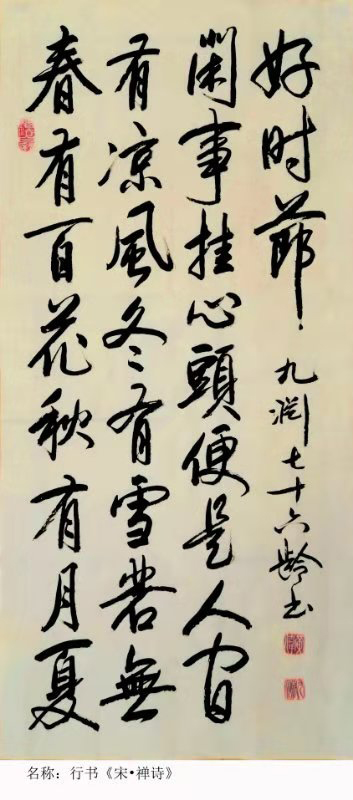 春有百花秋有月夏
有凉風冬有雪若無
闲事挂心頭便是人间
好时節
九渊七十六龄书
名称：行书《宋•禅诗》